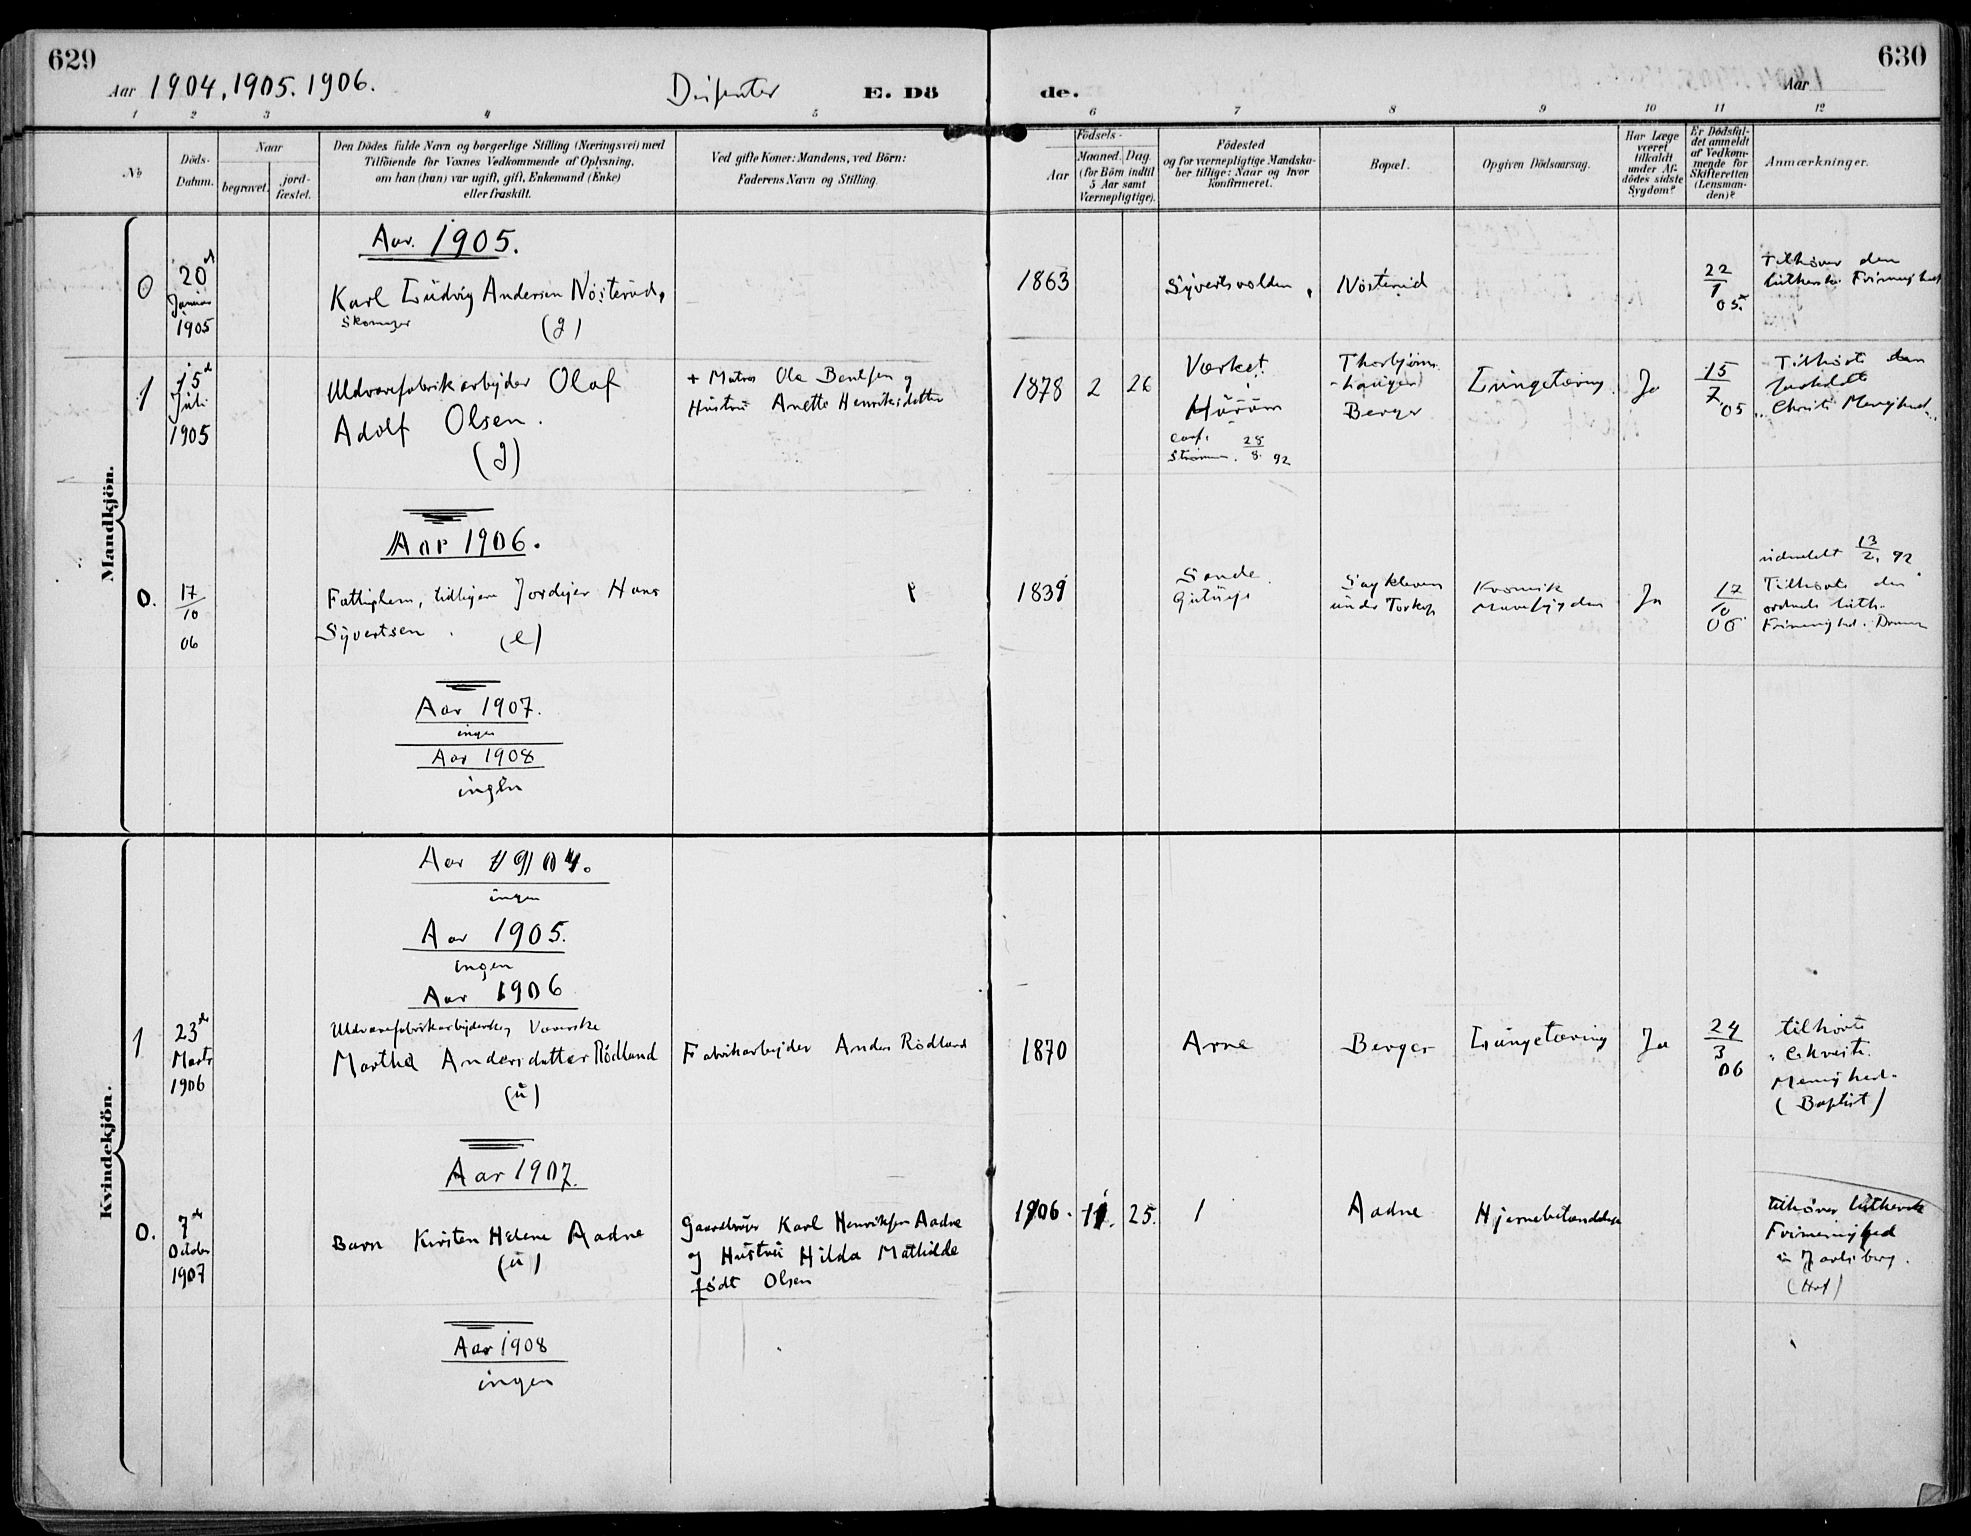 629
Aar 1904, 1905. 1906.
Disenter
E. Dö
de.
630
Aar
1 2 3 4 5 6 7 8 9 10 11 12
No
Döds-
Datum.
Naar
begravet.
jord-
fæstet.
Den Dödes fulde Navn og borgerlige Stilling (Næringsvei) med
Tilföiende for Voxnes Vedkommende af Oplysning,
om han (hun) var ugift, gift, Enkemand (Enke)
eller fraskilt.
Ved gifte Koner: Mandens, ved Börn:
Faderens Navn og Stilling.
Födsels-
Aar
Maaned. Dag
(for Börn indtil
5 Aar samt
Værnepligtige).
Födested
og for værnepligtige Mandska-
ber tillige: Naar og hvor
konfirmeret.
Bopæl.
Opgiven Dödsaarsag.
Har Læge
været
tilkaldt
under Af-
dödes sidste
Sygdom?
Er Dödsfal-
det anmeldt
af Vedkom-
mende for
Skifteretten
(Lensman-
den)?
Anmærkninger.
Mandkjön.
Aar. 1905.
0
20
Januar
1905
Karl Ludvig Andersen Nösterud,
Skomager
(g)
1863
Syvertsvolden,
Nösterud
22
1
05.
Tilhører den
lutherske Frimenighed
1
15
Juli
1905
Uldvarefabrikarbejder Olaf
Adolf Olsen.
(g)
+ Matros Ole Bentsen og
Hustru Anette Henriksdatter
1878 2 26
Værket
Hurum
conf.
Strömm. 28
8. 92
Thorbjörns-
Berger
Lungetæring.
Ja
15
7.
05
Tilhörte den
Christi Menighed
Aar 1906.
0.
17
10
06
Fattiglem, tidligere Jordejer Hans
Syvertsen.
(e)
1839
Sande.
under
Kronisk
Ja
17
10
06
udmeldt 13
2. 92.
Tilhörte den
luth.
Frimenighed.
Aar 1907.
ingen
Aar 1908
ingen
Kvindekjön.
Aar 1904.
ingen
Aar 1905.
ingen
Aar 1906
1
23
Marts
1906
Uldvarefabrikarbejderske, Væverske
Martha Andersdatter Rödland
(u)
Fabrikarbejder Anders Rödland
1870
Arne
Berger
Lungetæring
Ja
24
3
06
tilhörte
Menighed.
(Baptist)
Aar 1907.
0.
7
October
1907
Barn Kirsten Helene Aadne
(u)
Gaardbruger Karl Henriksen Aadne
og Hustru Hilda Mathilde
födt Olsen
1906. 11. 25.
Aadne
Hjernebetændelse
tilhører lutherske
Frimenighed
i Jarlsberg.
(Hof)
Aar 1908
ingen